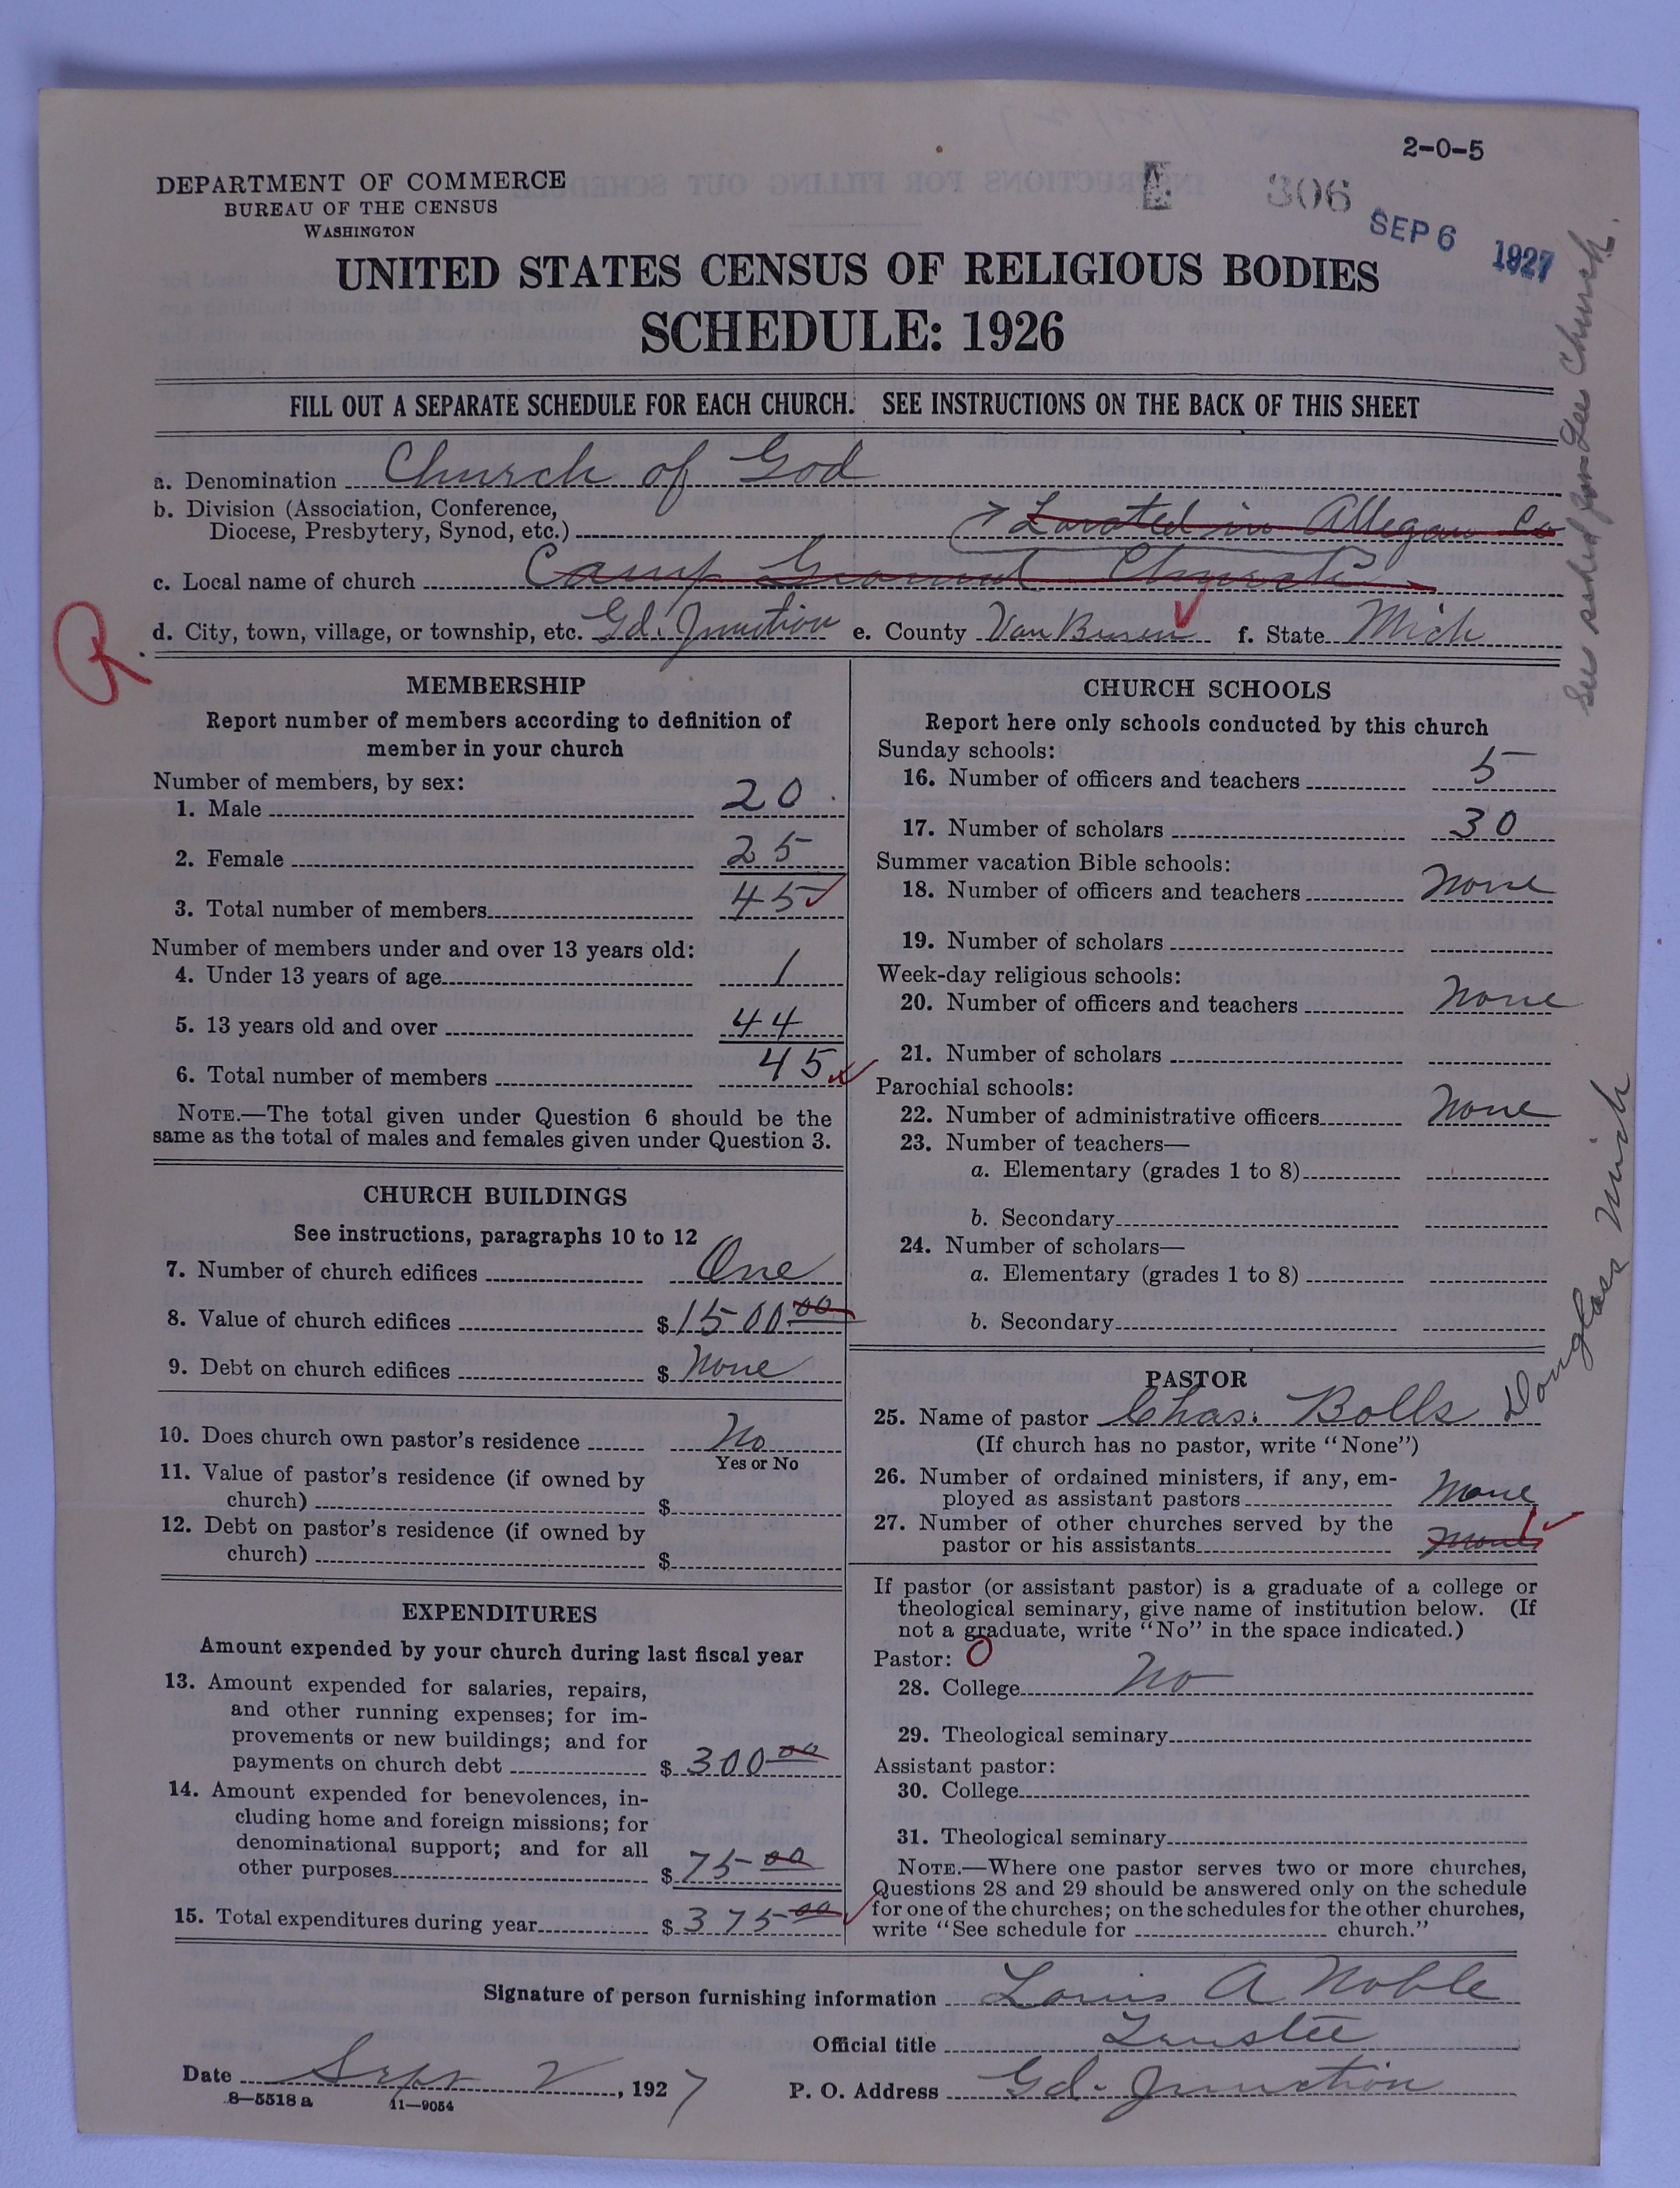 2-0-5
DEPARTMENT OF COMMERCE
BUREAU OF THE CENSUS
WASHINGTON
306
SEP 6 1927
UNITED STATES CENSUS OF RELIGIOUS BODIES
SCHEDULE: 1926
FILL OUT A SEPARATE SCHEDULE FOR EACH CHURCH. SEE INSTRUCTIONS ON THE BACK OF THIS SHEET
a. Denomination Church of God
b. Division (Association, Conference,
Diocese, Presbytery, Synod, etc.) Located in Allegan Co
c. Local name of church Camp Ground Church
d. City, town, village, or township, etc. Gd. Junction e. County Van Buren f. State Mich
R
See sched for Lee Church.
MEMBERSHIP
Report number of members according to definition of
member in your church
Number of members, by sex:
1. Male 20
2. Female 25
3. Total number of members 45
Number of members under and over 13 years old:
4. Under 13 years of age 1
5. 13 years old and over 44
6. Total number of members 45
NOTE.—The total given under Question 6 should be the
same as the total of males and females given under Question 3.
CHURCH BUILDINGS
See instructions, paragraphs 10 to 12
7. Number of church edifices One
8. Value of church edifices $1500 00
9. Debt on church edifices $ None
10. Does church own pastor's residence No
Yes or No
11. Value of pastor's residence (if owned by
church) $
12. Debt on pastor's residence (if owned by
church) $
EXPENDITURES
Amount expended by your church during last fiscal year
13. Amount expended for salaries, repairs,
and other running expenses; for im-
provements or new buildings; and for
payments on church debt $ 300 00
14. Amount expended for benevolences, in-
cluding home and foreign missions; for
denominational support; and for all
other purposes $ 75 00
15. Total expenditures during year $ 375 00
CHURCH SCHOOLS
Report here only schools conducted by this church
Sunday schools:
16. Number of officers and teachers 5
17. Number of scholars 30
Summer vacation Bible schools:
18. Number of officers and teachers None
19. Number of scholars
Week-day religious schools:
20. Number of officers and teachers None
21. Number of scholars
Parochial schools:
22. Number of administrative officers None
23. Number of teachers—
a. Elementary (grades 1 to 8)
b. Secondary
24. Number of scholars—
a. Elementary (grades 1 to 8)
b. Secondary
PASTOR
25. Name of pastor Chas. Bolls Douglass Mich
(If church has no pastor, write "None")
26. Number of ordained ministers, if any, em-
ployed as assistant pastors None
27. Number of other churches served by the
pastor or his assistants None 1
If pastor (or assistant pastor) is a graduate of a college or
theological seminary, give name of institution below. (If
not a graduate, write "No" in the space indicated.)
Pastor: 0
28. College No
29. Theological seminary
Assistant pastor:
30. College
31. Theological seminary
NOTE.—Where one pastor serves two or more churches,
Questions 28 and 29 should be answered only on the schedule
for one of the churches; on the schedules for the other churches,
write "See schedule for church."
Signature of person furnishing information Louis A Noble
Official title Trustee
Date Sept 2, 1927 P. O. Address Gd. Junction
8—5518 a 11—9054